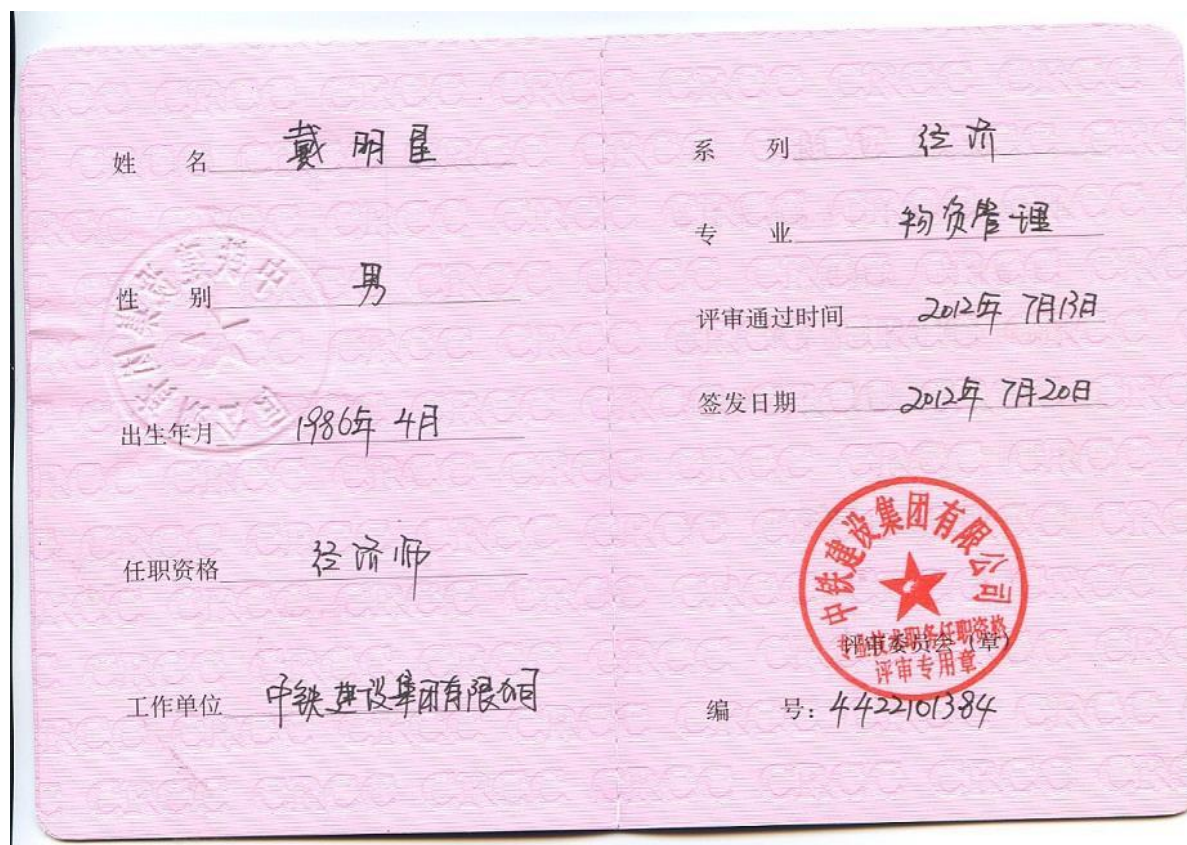 姓 名 戴明星
性 别 男
出生年月 1986年 4月
任职资格 经济师
工作单位 中铁建设集团有限公司
系 列 经济
专 业 物资管理
评审通过时间 2012年 7月13日
签发日期 2012年 7月20日
中铁建设集团有限公司
专业技术职务任职资格
评审专用章
评审委员会（章）
编 号：4422101384
CRCC